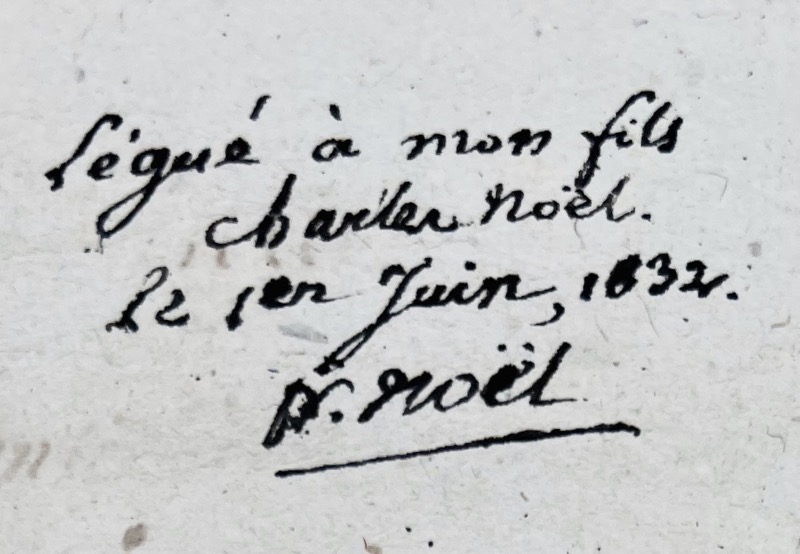 légué à mon fils
charles Noël.
le 1er Juin, 1832.
Noël